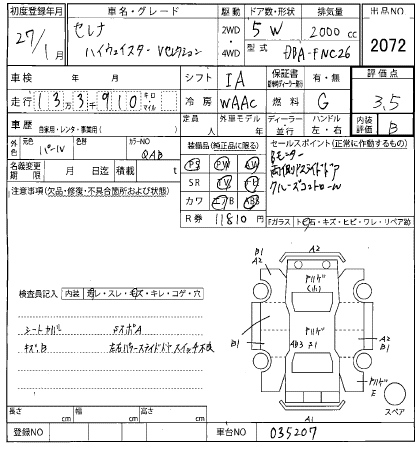 初度登録年月 車名・グレード 駆動 ドア数・形状 排気量 出品NO
27/1月 セレナ 2WD 5 W 2000 cc 2072
ハイウェイスター Vセレクション 4WD 型式 DBA-FNC26
車検 年 月 シフト IA 保証書 有・無 評価点
走行 13万3千910 キロ マイル 冷房 WAAC 燃料 G 3.5
車歴 自家用・レンタ・事業用( ) 定員 人 外車モデル 年 ディーラー 並行 ハンドル 左・右 内装評価 B
外色 元色 パール 色替 カラーNO QAB 装備品(純正品に限る) セールスポイント(正常に作動するもの)
名義変更期限 月 日迄 積載 t PS PW
注意事項(欠品・修復・不具合箇所および状態) SR TV 両側Pスライドドア
カワ エアB ABS クルーズコントロール
R券 11810円 Fガラス トビ石・キズ・ヒビ・ワレ・リペア跡
A2
B1
A2
検査員記入 内装 汚レ・スレ・キズ・キレ・コゲ・穴
シートカバー
キズB 左右パワースライドドアスイッチ不良
B1
A2
B1
E
スペア
A1
長さ cm 幅 cm 高さ cm
登録NO 車台NO 035207